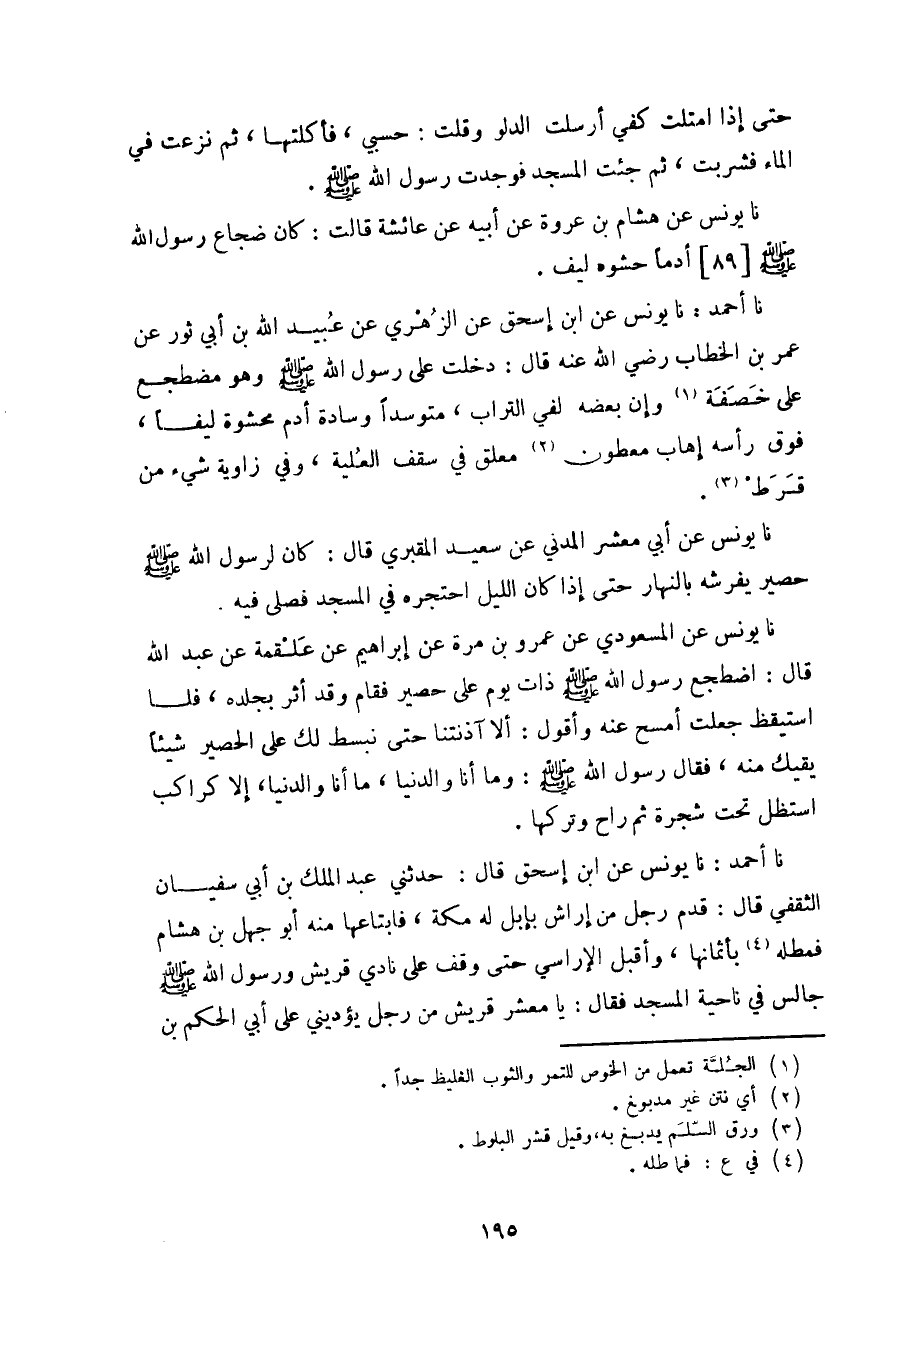 حتى إذا امتلت كفي أرسلت الدلو وقلت : حسبي ، فأكلتها ، ثم نزعت في
الماء فشربت ، ثم جئت المسجد فوجدت رسول الله ﷺ .
نا يونس عن هشام بن عروة عن أبيه عن عائشة قالت : كان ضجاع رسول الله
ﷺ [٨٩] أدماً حشوه ليف .
نا أحمد : نا يونس عن ابن إسحق عن الزُهْري عن عُبيد الله بن أبي ثور عن
عمر بن الخطاب رضي الله عنه قال : دخلت على رسول الله ﷺ وهو مضطجع
على خَصَفَة (١) وإن بعضه لفي التراب ، متوسداً وسادة أدم محشوة ليفاً ،
فوق رأسه إهاب معطون (٢) معلق في سقف العُلية ، وفي زاوية شيء من
قَرَظْ (٣) .
نا يونس عن أبي معشر المدني عن سعيد المقبري قال : كان لرسول الله ﷺ
حصير يفرشه بالنهار حتى إذا كان الليل احتجره في المسجد فصلى فيه .
نا يونس عن المسعودي عن عمرو بن مرة عن إبراهيم عن عَلْقمة عن عبد الله
قال : اضطجع رسول الله ﷺ ذات يوم على حصير فقام وقد أثر بجلده ، فلما
استيقظ جعلت أمسح عنه وأقول : ألا آذنتنا حتى نبسط لك على الحصير شيئاً
يقيك منه ، فقال رسول الله ﷺ : وما أنا والدنيا ، ما أنا والدنيا، إلا كراكب
استظل تحت شجرة ثم راح وتركها .
نا أحمد : نا يونس عن ابن إسحق قال : حدثني عبد الملك بن أبي سفيان
الثقفي قال : قدم رجل من إراش بإبل له مكة ، فابتاعها منه أبو جهل بن هشام
فمطله (٤) بأثمانها ، وأقبل الإراسي حتى وقف على نادي قريش ورسول الله ﷺ
جالس في ناحية المسجد فقال : يا معشر قريش من رجل يؤديني على أبي الحكم بن
(١) الجُلَّة تعمل من الخوص للتمر والثوب الغليظ جداً .
(٢) أي نتن غير مدبوغ .
(٣) ورق السَّلَم يدبغ به، وقيل قشر البلوط .
(٤) في ع : فماطله .
١٩٥